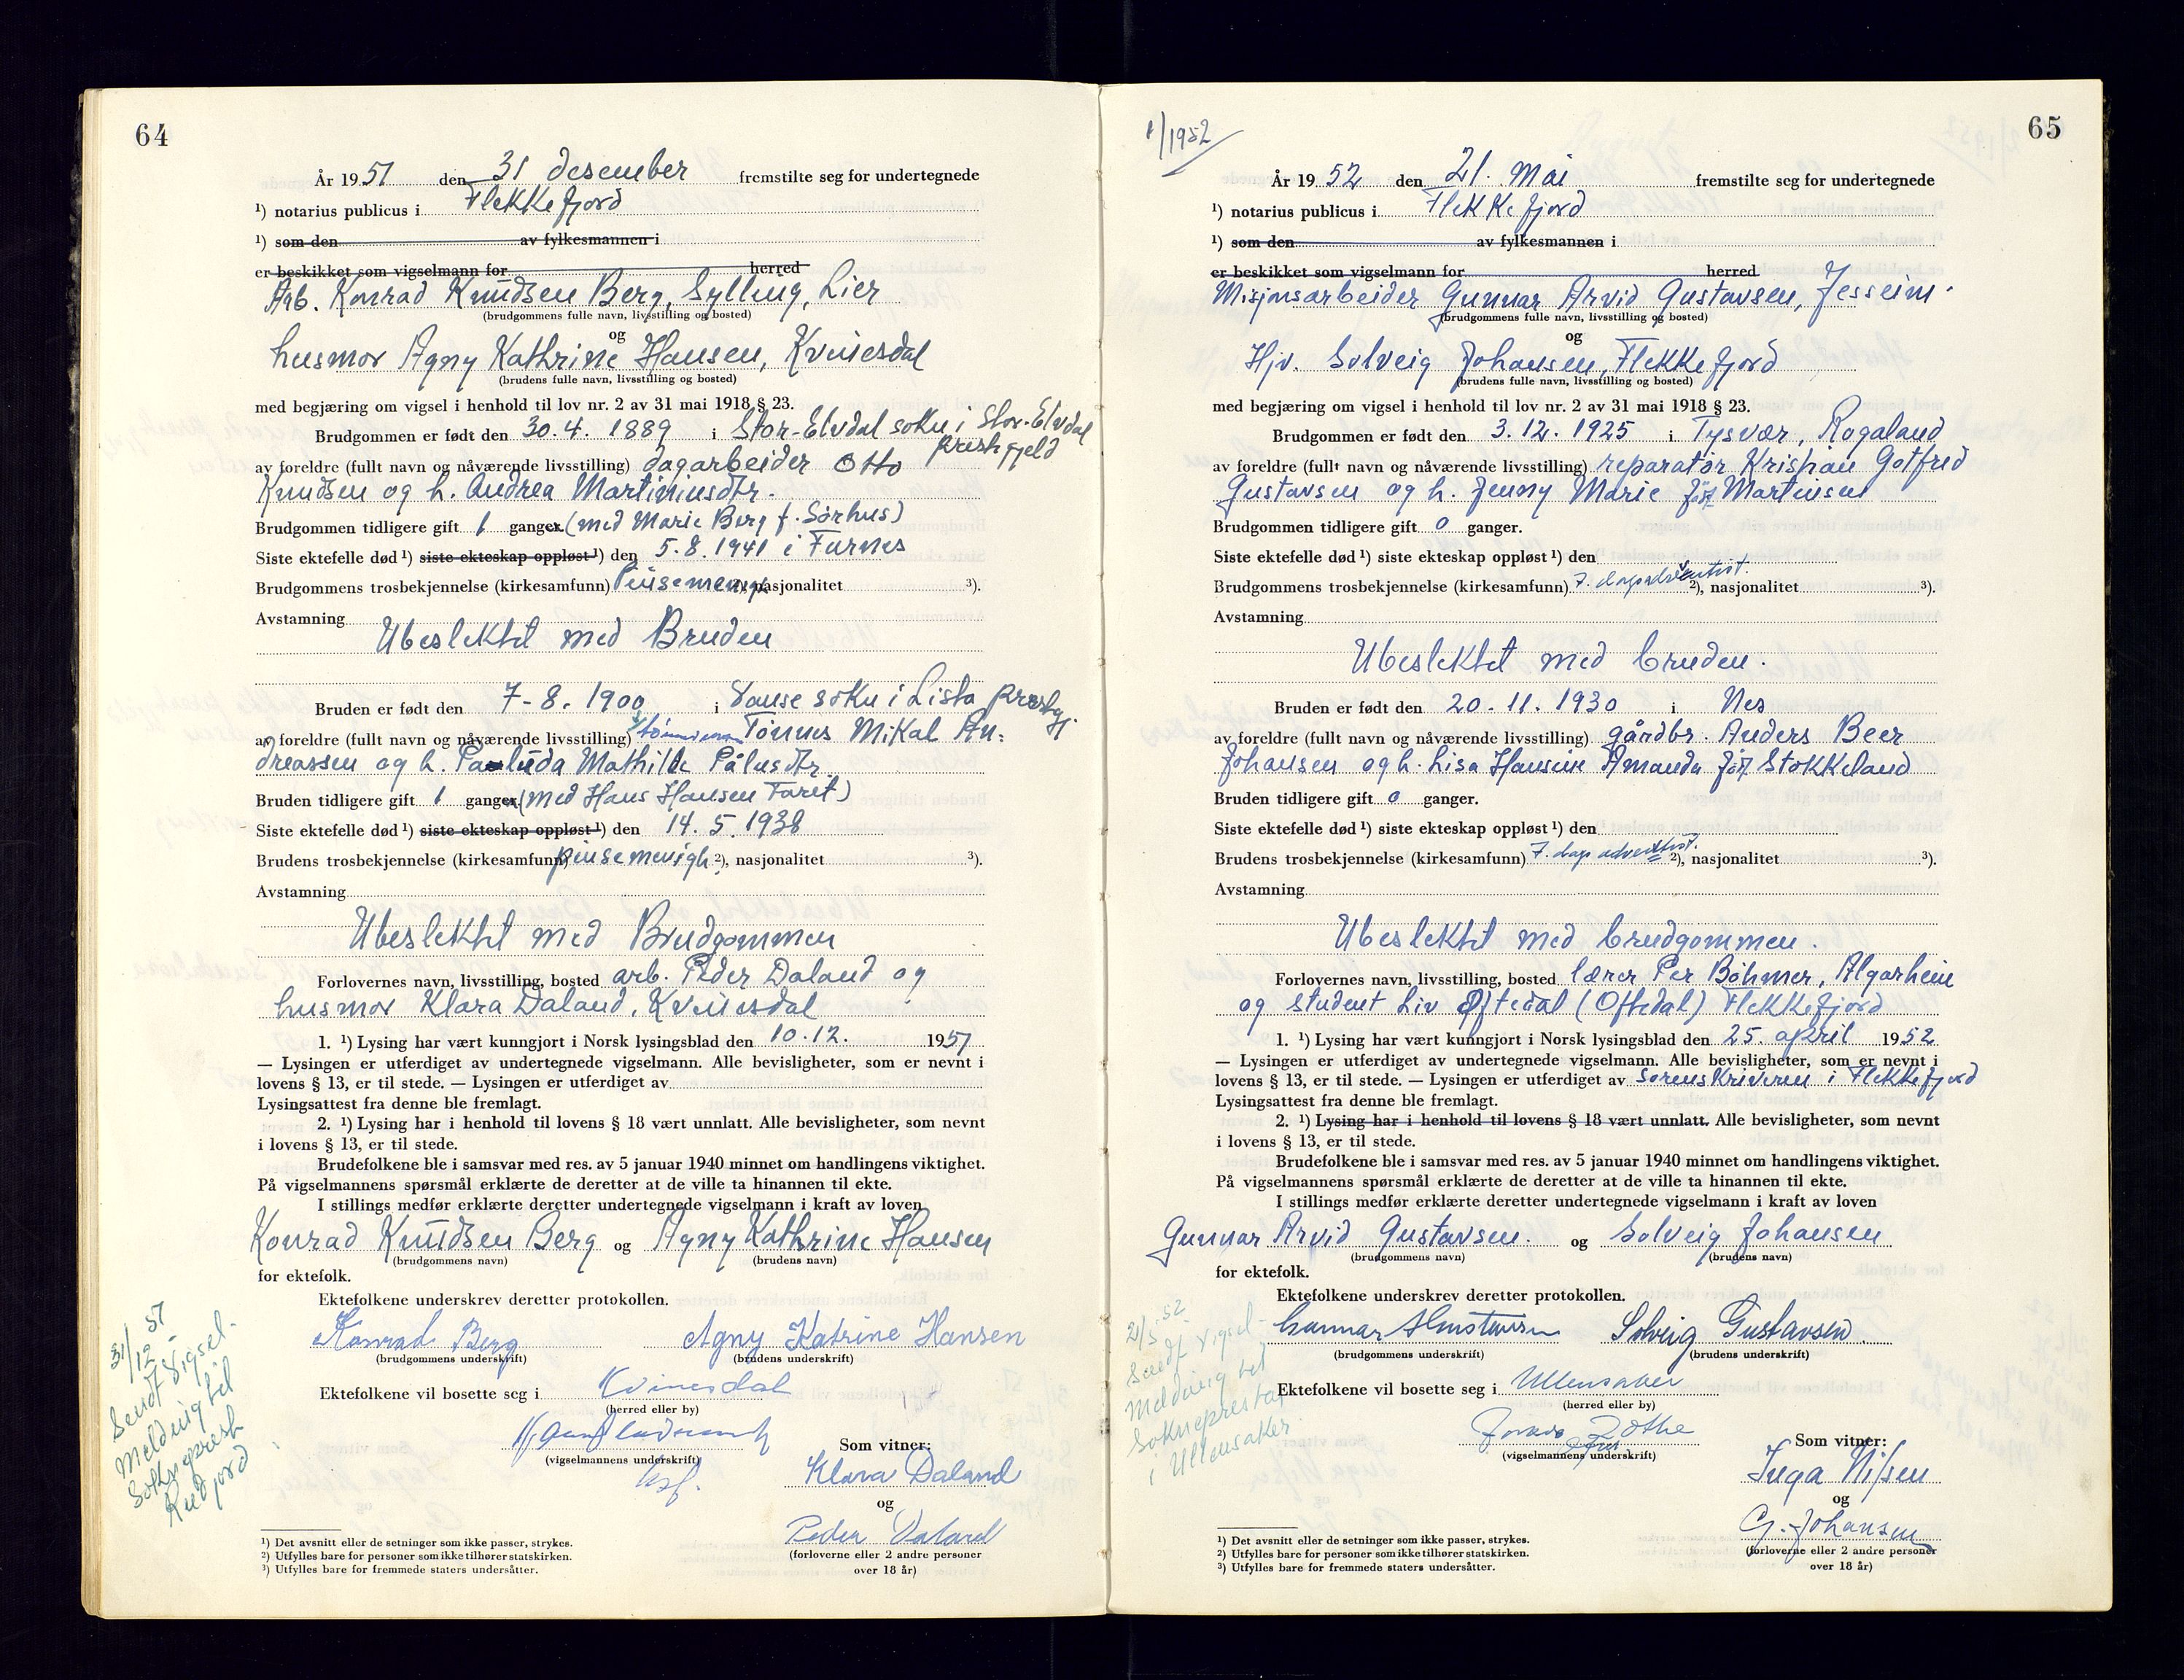 64
År 1951 den 31 desember fremstilte seg for undertegnede
¹) notarius publicus i Flekkefjord
¹) som den av fylkesmannen i
er beskikket som vigselmann for herred
Arb. Konrad Knudsen Berg, Sylling, Lier
(brudgommens fulle navn, livsstilling og bosted)
og
husmor Agny Kathrine Hansen, Kvinesdal
(brudens fulle navn, livsstilling og bosted)
med begjæring om vigsel i henhold til lov nr. 2 av 31 mai 1918 § 23.
Brudgommen er født den 30.4. 1889 i Stor-Elvdal sokn i Stor-Elvdal
prestegjeld
av foreldre (fullt navn og nåværende livsstilling) dagarbeider Otto
Knudsen og h. Andrea Martiniusdtr.
Brudgommen tidligere gift 1 ganger (med Marie Berg f. Sørhus)
Siste ektefelle død ¹) siste ekteskap oppløst ¹) den 5.8.1941 i Furnes
Brudgommens trosbekjennelse (kirkesamfunn) Pinsemenigh ²), nasjonalitet ³).
Avstamning
Ubeslektet med Bruden
Bruden er født den 7-8. 1900 i Vanse sokn i Lista prestgj
av foreldre (fullt navn og nåværende livsstilling) Tønnes Mikal An=
dreassen og h. Paulida Mathilde Pålusdtr.
Bruden tidligere gift 1 ganger (med Hans Hansen Faret)
Siste ektefelle død ¹) siste ekteskap oppløst ¹) den 14. 5. 1938
Brudens trosbekjennelse (kirkesamfunn) pinsemenigh ²), nasjonalitet ³).
Avstamning
Ubeslektet med Brudgommen
Forlovernes navn, livsstilling, bosted arb. Peder Daland og
husmor Klara Daland, Kvinesdal
1. ¹) Lysing har vært kunngjort i Norsk lysingsblad den 10.12. 1951
— Lysingen er utferdiget av undertegnede vigselmann. Alle bevisligheter, som er nevnt i
lovens § 13, er til stede. — Lysingen er utferdiget av
Lysingsattest fra denne ble fremlagt.
2. ¹) Lysing har i henhold til lovens § 18 vært unnlatt. Alle bevisligheter, som nevnt
i lovens § 13, er til stede.
Brudefolkene ble i samsvar med res. av 5 januar 1940 minnet om handlingens viktighet.
På vigselmannens spørsmål erklærte de deretter at de ville ta hinannen til ekte.
I stillings medfør erklærte deretter undertegnede vigselmann i kraft av loven
Konrad Knudsen Berg og Agny Kathrine Hansen
(brudgommens navn) (brudens navn)
for ektefolk.
Ektefolkene underskrev deretter protokollen.
Konrad Berg Agny Katrine Hansen
(brudgommens underskrift) (brudens underskrift)
Ektefolkene vil bosette seg i Kvinesdal
(herred eller by)
(vigselmannens underskrift)
Som vitner:
Klara Daland
og
Peder Daland
(forloverne eller 2 andre personer
over 18 år)
31/12 51
Sendt vigsel-
melding til
Sokneprest
¹) Det avsnitt eller de setninger som ikke passer, strykes.
²) Utfylles bare for personer som ikke tilhører statskirken.
³) Utfylles bare for fremmede staters undersåtter.
1/1952
65
År 1952 den 21. Mai fremstilte seg for undertegnede
¹) notarius publicus i Flekkefjord
¹) som den av fylkesmannen i
er beskikket som vigselmann for herred
Misjonsarbeider Gunnar Arvid Gustavsen, Jesseim.
(brudgommens fulle navn, livsstilling og bosted)
og
Hjv. Solveig Johansen, Flekkefjord
(brudens fulle navn, livsstilling og bosted)
med begjæring om vigsel i henhold til lov nr. 2 av 31 mai 1918 § 23.
Brudgommen er født den 3.12. 1925 i Tysvær, Rogaland
av foreldre (fullt navn og nåværende livsstilling) reparatør Kristian Gotfred
Gustavsen og h. Jenny Marie født Martinsen
Brudgommen tidligere gift 0 ganger.
Siste ektefelle død ¹) siste ekteskap oppløst ¹) den
Brudgommens trosbekjennelse (kirkesamfunn) 7. dagsadventist. ²), nasjonalitet ³).
Avstamning
Ubeslektet med bruden.
Bruden er født den 20. 11. 1930 i Nes
av foreldre (fullt navn og nåværende livsstilling) gårdbr. Anders Beer
Johansen og h. Lisa Hansine Amanda født Stokkeland
Bruden tidligere gift 0 ganger.
Siste ektefelle død ¹) siste ekteskap oppløst ¹) den
Brudens trosbekjennelse (kirkesamfunn) 7. dags adventist. ²), nasjonalitet ³).
Avstamning
Ubeslektet med brudgommen.
Forlovernes navn, livsstilling, bosted lærer Per Bøhmer, Algarheim
og student Liv Øftedal (Oftedal) Flekkefjord
1. ¹) Lysing har vært kunngjort i Norsk lysingsblad den 25. april 1952
— Lysingen er utferdiget av undertegnede vigselmann. Alle bevisligheter, som er nevnt i
lovens § 13, er til stede. — Lysingen er utferdiget av sorenskriveren i Flekkefjord
Lysingsattest fra denne ble fremlagt.
2. ¹) Lysing har i henhold til lovens § 18 vært unnlatt. Alle bevisligheter, som nevnt
i lovens § 13, er til stede.
Brudefolkene ble i samsvar med res. av 5 januar 1940 minnet om handlingens viktighet.
På vigselmannens spørsmål erklærte de deretter at de ville ta hinannen til ekte.
I stillings medfør erklærte deretter undertegnede vigselmann i kraft av loven
Gunnar Arvid Gustavsen. og Solveig Johansen
(brudgommens navn) (brudens navn)
for ektefolk.
Ektefolkene underskrev deretter protokollen.
Gunnar Gustavsen Solveig Gustavsen.
(brudgommens underskrift) (brudens underskrift)
Ektefolkene vil bosette seg i Ullensaker
(herred eller by)
(vigselmannens underskrift)
Som vitner:
Inga Nilsen
og
G. Johansen
(forloverne eller 2 andre personer
over 18 år)
21/5 52
Sendt vigsel-
melding til
Soknepresten
i Ullensaker.
¹) Det avsnitt eller de setninger som ikke passer, strykes.
²) Utfylles bare for personer som ikke tilhører statskirken.
³) Utfylles bare for fremmede staters undersåtter.